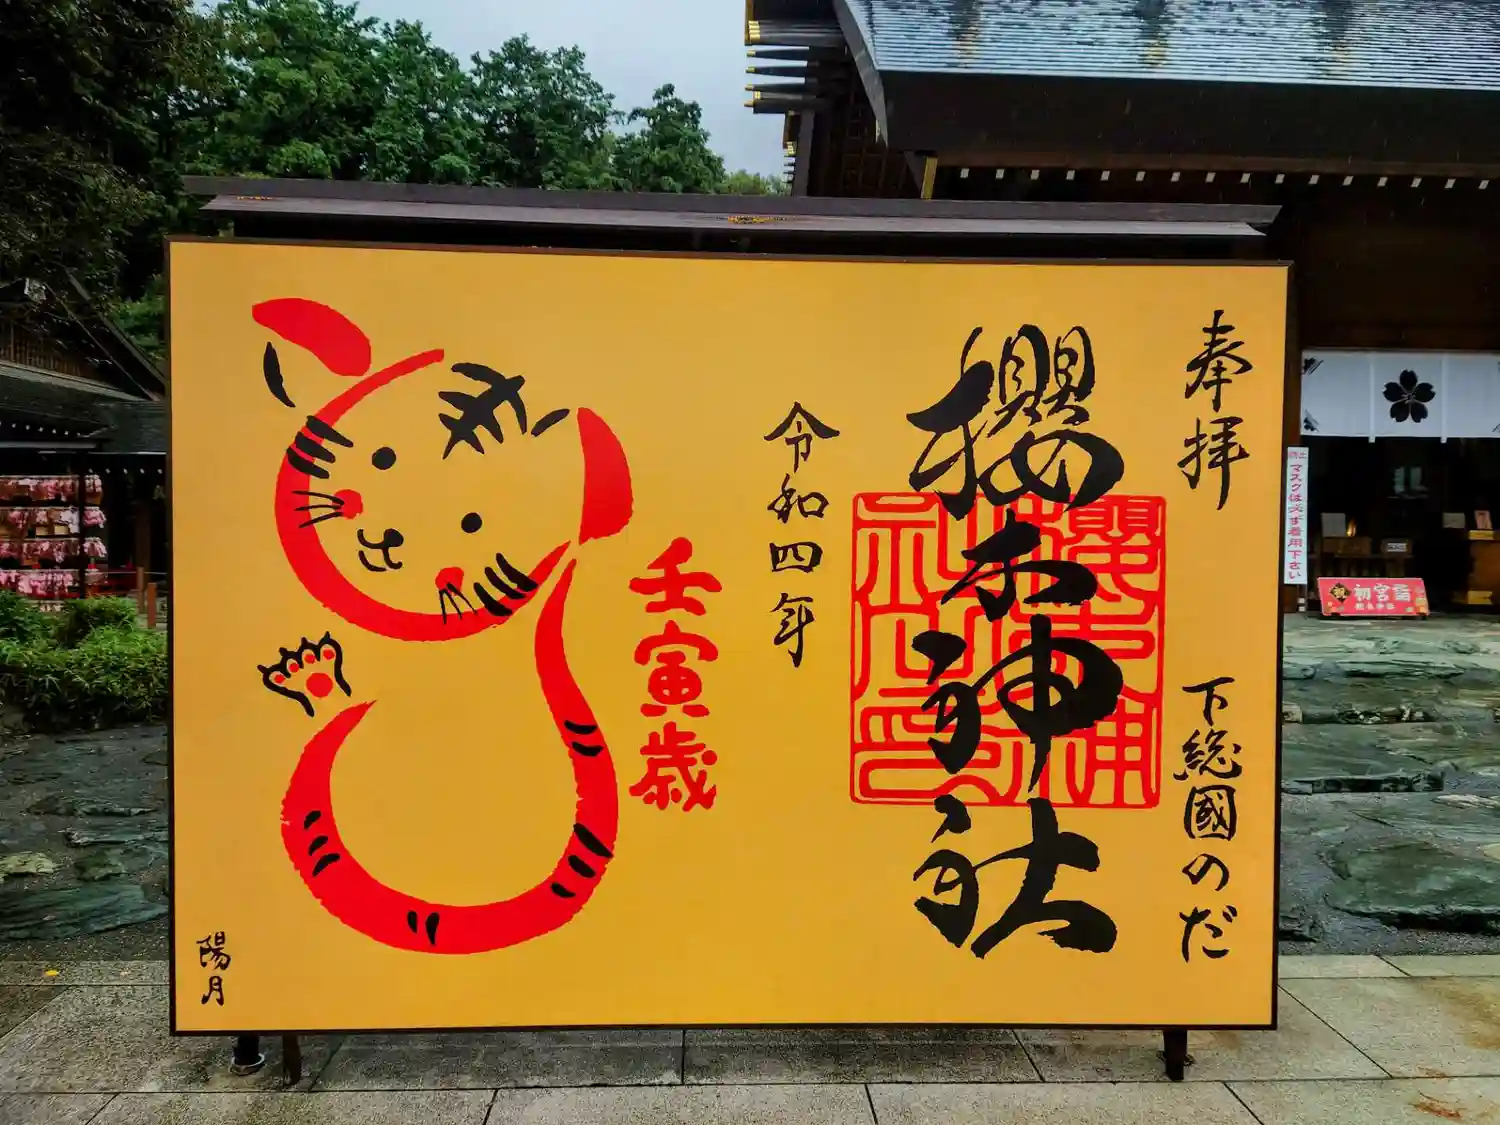 奉拝
下總國のだ
櫻木神社
櫻木神社之印
令和四年
壬寅歳
陽月
マスクは必ず着用下さい
初宮詣